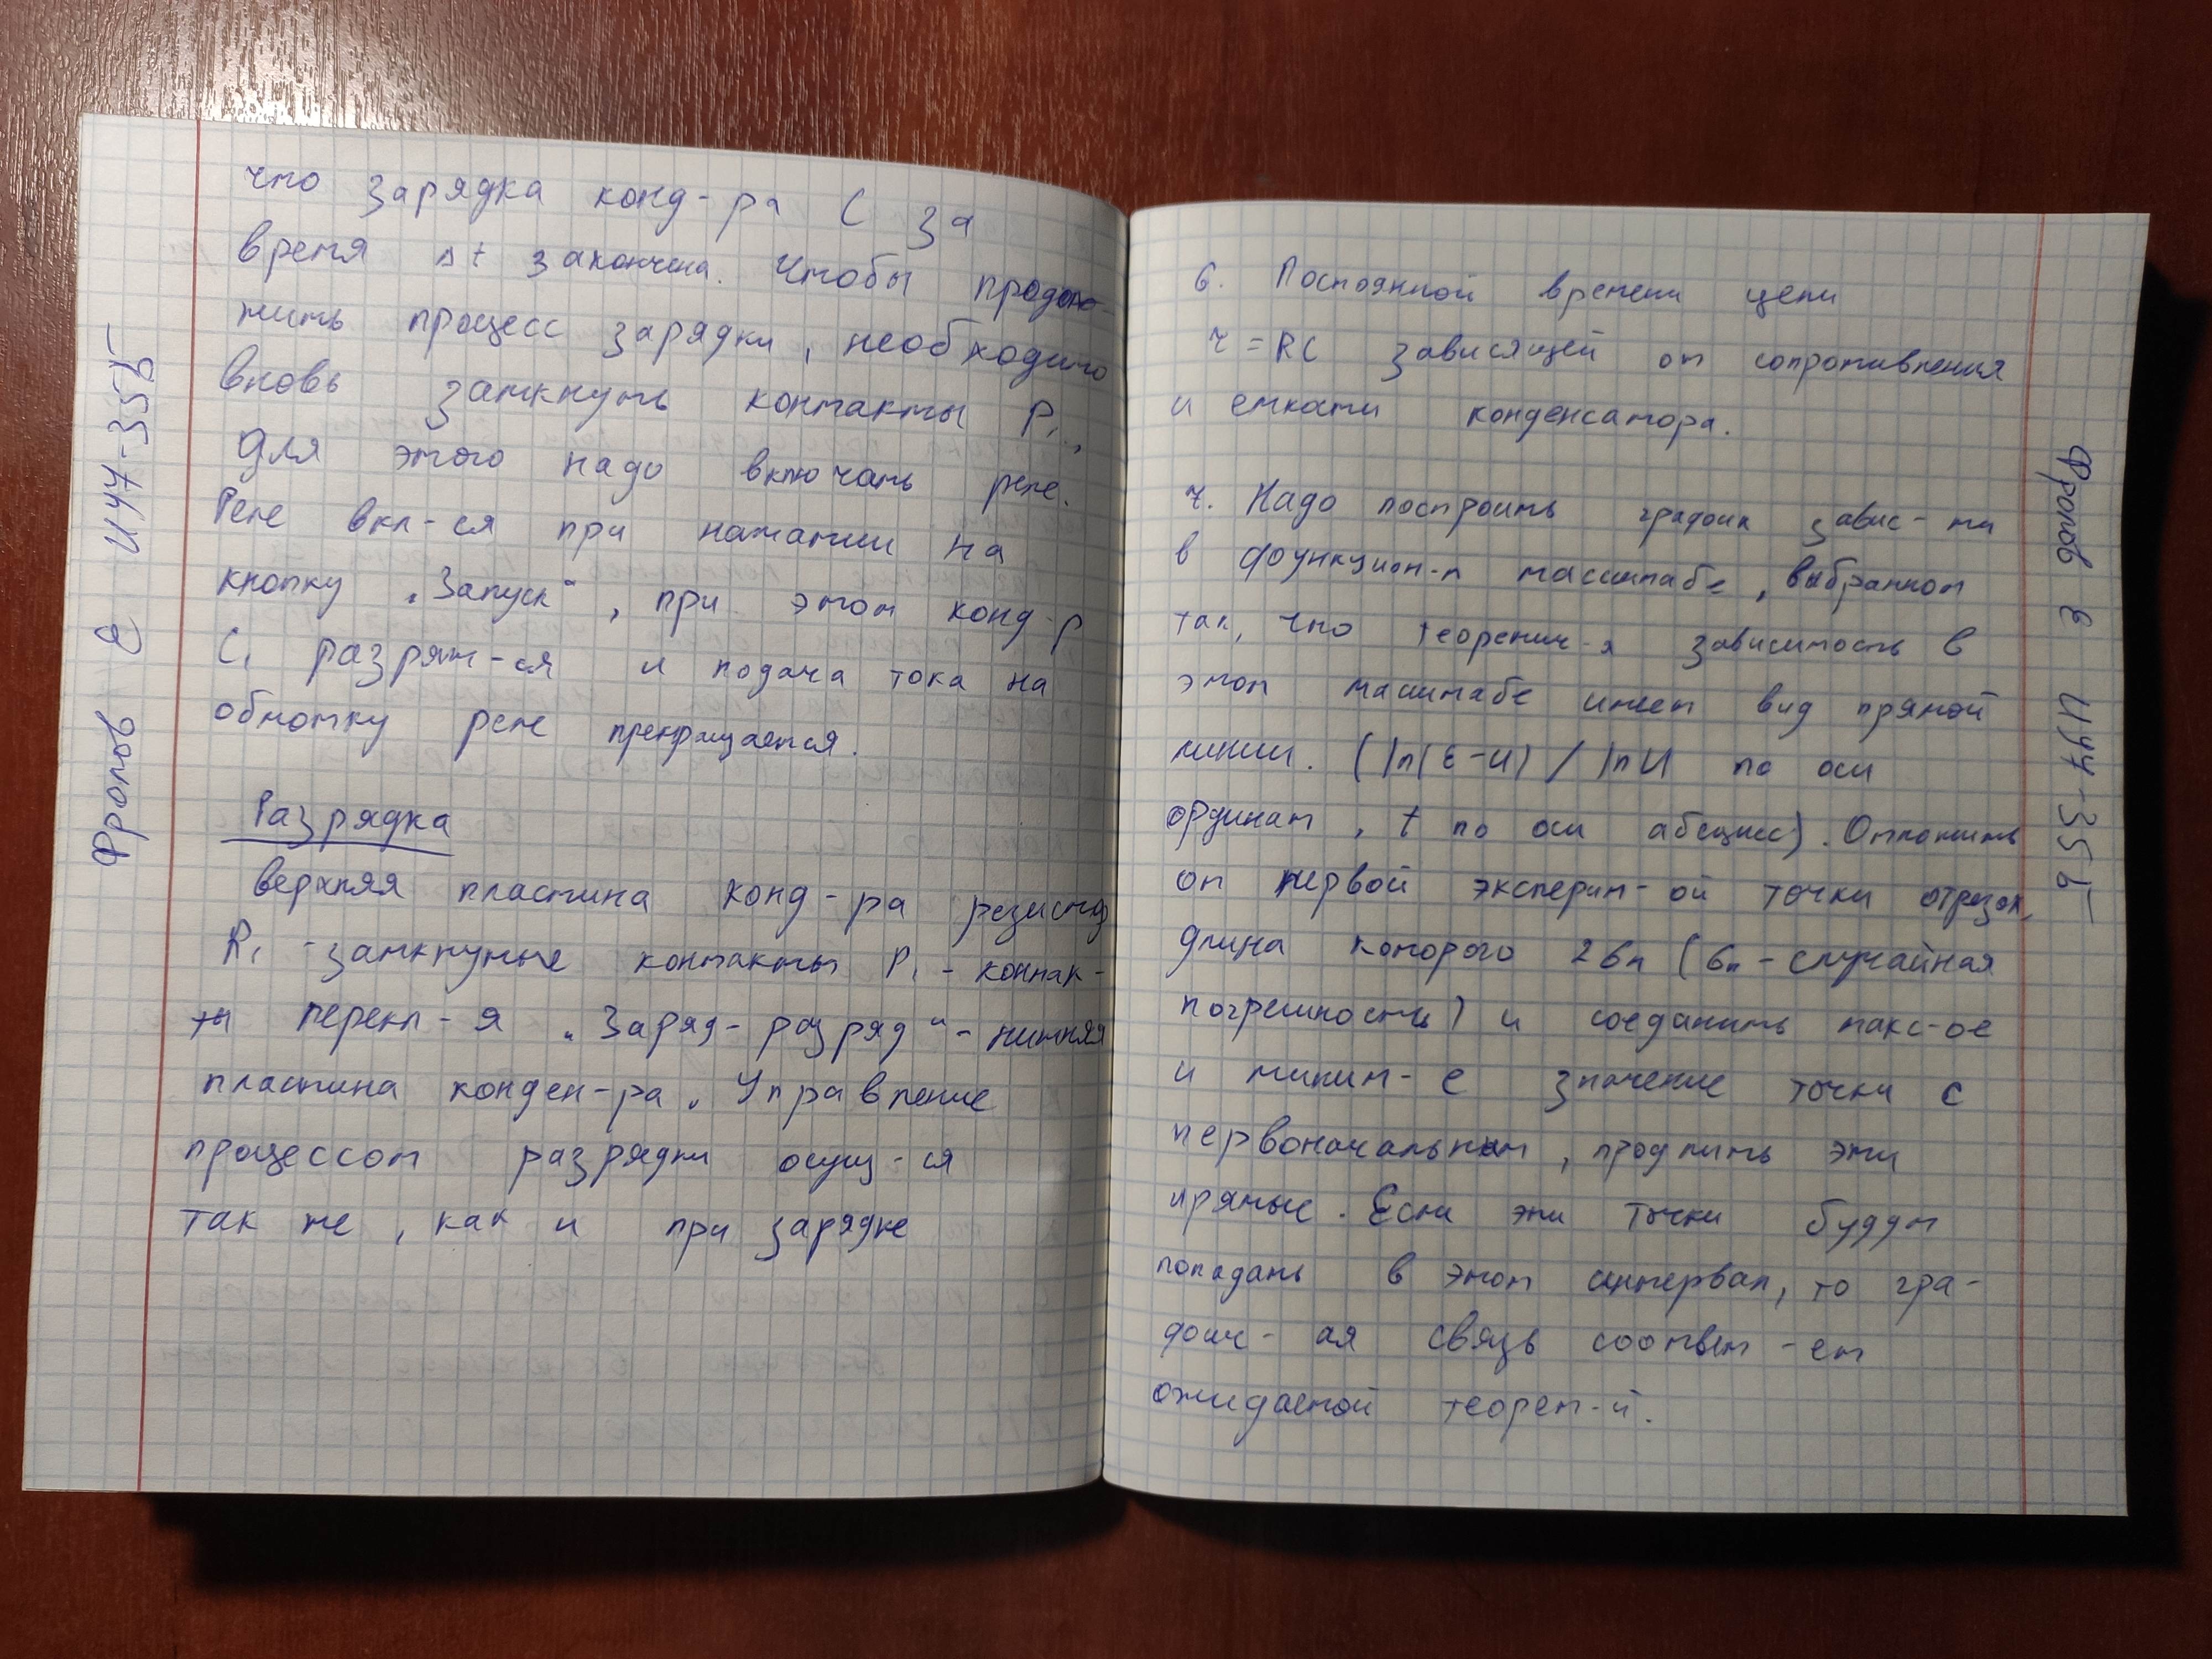 что зарядка конд-ра C за
время Δt закончена. Чтобы продол-
жить процесс зарядки, необходимо
вновь замкнуть контакты P₁,
для этого надо включать реле.
Реле вкл-ся при нажатии на
кнопку „Запуск“, при этом конд-р
C₁ разряж-ся и подача тока на
обмотку реле прекращается.
Разрядка
верхняя пластина конд-ра резистор
R₁ - замкнутые контакты P₁ - контак-
ты перекл-я „Заряд-разряд“ - нижняя
пластина конден-ра. Управление
процессом разрядки осущ-ся
так же, как и при зарядке
Фролов Е ИУ7-35Б
6. Постоянной времени цепи
τ = RC зависящей от сопротивления
и емкоти конденсатора.
7. Надо построить график завис-ти
в функцион-м масштабе, выбранном
так, что теоретич-я зависимость в
этом масштабе имеет вид прямой
линии. (ln(ε-U) / lnU по оси
ординат, t по оси абсцисс). Отложить
от первой эксперим-ой точки отрезок,
длина которого 2σₙ (σₙ - случайная
погрешность) и соединить макс-ое
и миним-е значение точки с
первоначальным, продлить эти
прямые. Если эти точки будут
попадать в этот интервал, то гра-
фич-ая связь соответ-ет
ожидаемой теорет-й.
Фролов Е ИУ7-35Б